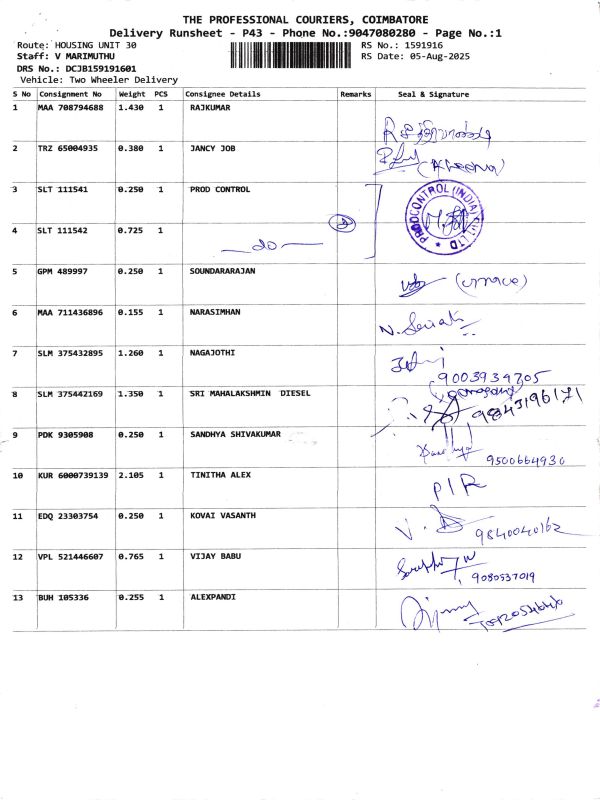 THE PROFESSIONAL COURIERS, COIMBATORE
Delivery Runsheet - P43 - Phone No.:9047080280 - Page No.:1
Route: HOUSING UNIT 30 RS No.: 1591916
Staff: V MARIMUTHU RS Date: 05-Aug-2025
DRS No.: DCJB159191601
Vehicle: Two Wheeler Delivery
S No Consignment No Weight PCS Consignee Details Remarks Seal & Signature
1 MAA 708794688 1.430 1 RAJKUMAR
2 TRZ 65004935 0.380 1 JANCY JOB
3 SLT 111541 0.250 1 PROD CONTROL
PRODCONTROL (INDIA) PVT LTD
4 SLT 111542 0.725 1 —do— 2
5 GPM 489997 0.250 1 SOUNDARARAJAN
6 MAA 711436896 0.155 1 NARASIMHAN
7 SLM 375432895 1.260 1 NAGAJOTHI
9003934705
8 SLM 375442169 1.350 1 SRI MAHALAKSHMIN DIESEL 9843196171
9 PDK 9305908 0.250 1 SANDHYA SHIVAKUMAR
9500664930
10 KUR 6000739139 2.105 1 TINITHA ALEX
11 EDQ 23303754 0.250 1 KOVAI VASANTH
9840040162
12 VPL 521446607 0.765 1 VIJAY BABU
9080537019
13 BUH 105336 0.255 1 ALEXPANDI